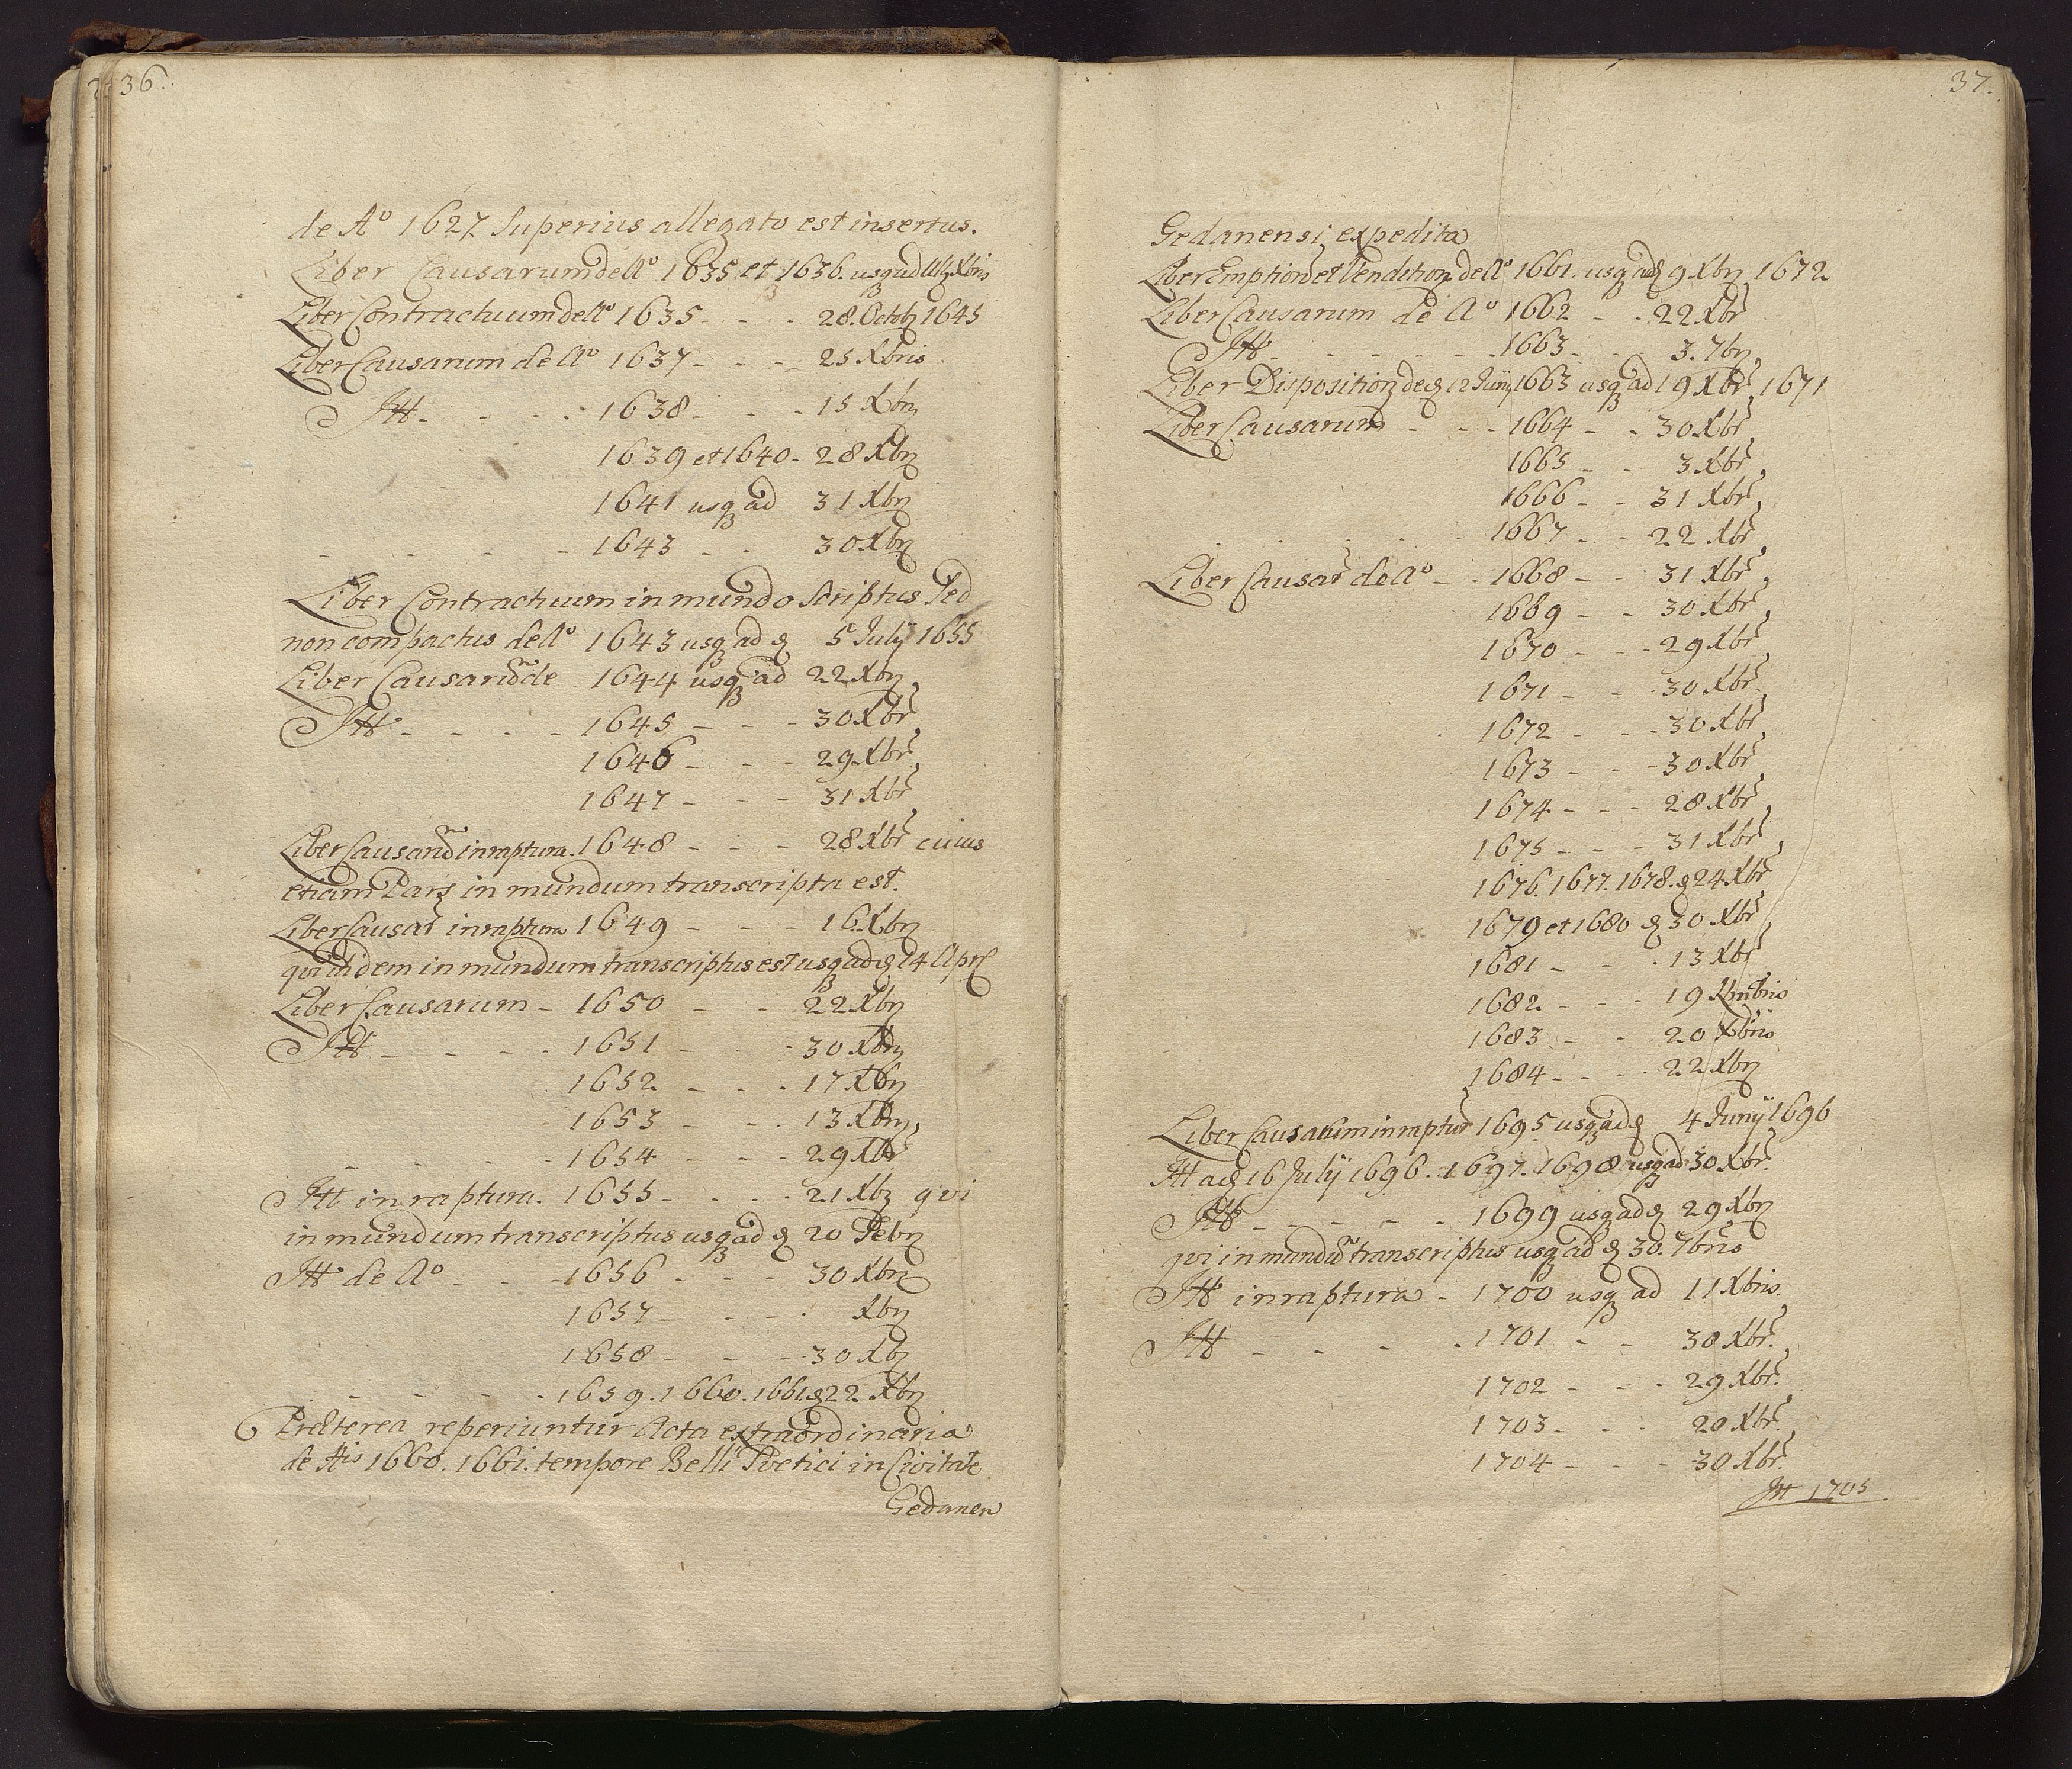 36.
de Aº 1627. Superius allegato est insertus.
Liber Causarum de Aº 1635 et 1636. usq ad Xbris
Liber Contractuum de Aº 1635 - - - 28. Octobr 1645
Liber Causarum de Aº 1637 - - - 25 Xbris
Itt - - - - 1638 - - - 15 Xbrs
1639 et 1640 - 28 Xbrs
1641 usq ad 31 Xbrs
- - - - 1643 - - 30 Xbrs
Liber Contractuum in mundo Scriptus sed
non compactus de Aº 1643 usq ad d 5 Julij 1655
Liber Causarū de 1644 usq ad 22 Xbrs
Itt - - - - 1645 - - - 30 Xbr
1646 - - - 29 Xbr
1647 - - - 31 Xbr
Liber Causarū in raptura. 1648 - - - 28 Xbr cuius
etiam Pars in mundum transcripta est.
Liber Causar in raptura 1649 - - - 16 Xbrs
qvi itidem in mundum transcriptus est usq ad d 14 Apr
Liber Causarum - 1650 - - 22 Xbrs
Itt - - - - 1651 - - - 30 Xbrs
1652 - - - 17 Xbrs
1653 - - - 13 Xbrs
- - - - 1654 - - - 29 Xbr
Itt in raptura. 1655 - - - - 21 Xbr qvi
in mundum transcriptus usq ad d 20 Febr
Itt de Aº - - - 1656 - - - 30 Xbrs
1657 - - - - Xbrs
1658 - - - 30 Xbr
- - - - 1659. 1660. 1661. d 22 Xbrs
Præterea reperiuntur Acta extraordinaria
de Ais 1660. 1661. tempore Belli Svetici in Civitate
Gedanen
37.
Gedanensi expedita
Liber Emption et Vendition de Aº 1661. usq ad d 9 Xbrs 1672
Liber Causarum de Aº 1662 - - 22 Xbr
Itt - - - - - 1663 - - - 3. 7br
Liber Disposition de d 12 Junij 1663 usq ad 19 Xbr 1671
Liber Causarum - - - 1664 - - 30 Xbr
1665 - - 3 Xbr
1666 - - 31 Xbr
- - - - - 1667 - - 22 Xbr
Liber Causar de Aº - - 1668 - - 31 Xbr
1669 - - 30 Xbr
1670 - - - 29 Xbr
1671 - - - 30 Xbr
1672 - - - 30 Xbr
1673 - - - 30 Xbr
1674 - - - 28 Xbr
1675 - - - 31 Xbr
1676. 1677. 1678. d 24 Xbr
1679 et 1680 d 30 Xbr
1681 - - - 13 Xbr
1682. - - - 19 Xmbris
1683 - - 20 Xbris
1684 - - - 22 Xbrs
Liber Causarum in raptur 1695 usq ad d 4 Junij 1696
Itt a d 16 Julij 1696. 1697. 1698 usq ad 30 Xbr.
Itt - - - - - 1699 usq ad d 29 Xbrs
qvi in mundū transcriptus usq ad d 30. 7bris
Itt in raptura - 1700 usq ad 11 Xbris.
Itt - - - - 1701 - - 30 Xbr.
1702 - - - 29 Xbr.
1703 - - - 20 Xbr.
1704 - - - 30 Xbr.
Itt 1705